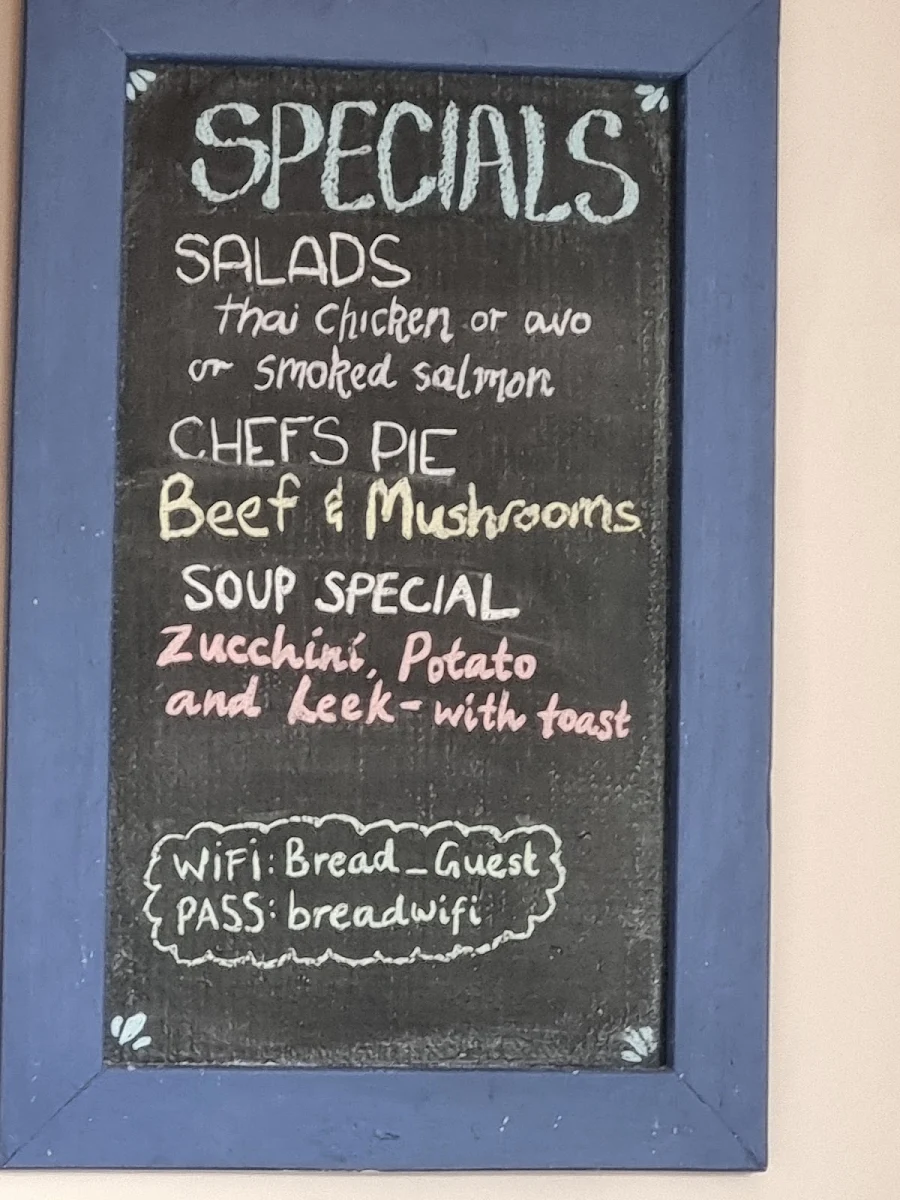 SPECIALS
SALADS
thai chicken or avo
or smoked salmon
CHEFS PIE
Beef & Mushrooms
SOUP SPECIAL
Zucchini, Potato
and Leek - with toast
WiFi: Bread_Guest
PASS: breadwifi